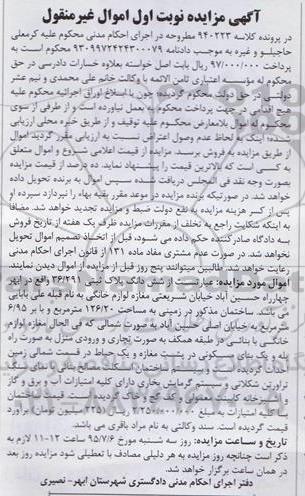 آگهی مزایده نوبت اول اموال غیرمنقول
در پرونده کلاسه ۹۴۰۲۲۳ مطروحه در اجرای احکام مدنی محکوم علیه کرمعلی
حاجیلو و غیره به موجب دادنامه ۹۳۰۹۹۷۲۴۲۴۳۰۰۰۷۹ محکوم است به
پرداخت ۹۷/۰۰۰/۰۰۰ ریال بابت اصل خواسته بعلاوه خسارات دادرسی در حق
محکوم له مؤسسه اعتباری ثامن الائمه با وکالت خانم علی محمدی و نیم عشر
دولتی در حق دولت محکوم گردیده؛ چون با اسلاغ اوراق اجرائیه محکوم علیه
هیچ اقدامی در جهت پرداخت محکوم به بعمل نیاورده است و از طرفی از سوی
محکوم له اموال بلامعارض محکوم علیه توقیف و از طریق خبره محلی ارزیابی
شده؛ اینک با لحاظ عدم وصول اعتراض نسبت به ارزیابی مقرر گردید اموال
از طریق مزایده به فروش برسد. مزایده از قیمت اعلامی شروع و اموال متعلق
به کسی است که بالاترین قیمت را پیشنهاد نماید. ده درصد از قیمت مزایده
بصورت وجه نقد فی المجلس دریافت شده سپس اموال به برنده تحویل داده
خواهد شد. در صورتیکه برنده مزایده در موعد مقرر بقیه بهاء را نپردازد سپرده او
پس از کسر هزینه مزایده به نفع دولت ضبط و مزایده تجدید خواهد شد. مضافا
به اینکه شکایت راجع به تخلف از مقررات مزایده ظرف یک هفته از تاریخ فروش
به دادگاه صادرکننده حکم داده می شود، قبل از اتخاذ تصمیم اموال تحویل
نخواهد شد. در صورت عدم مشتری مفاد ماده ۱۳۱ از قانون اجرای احکام مدنی
رعایت خواهد شد. طالبین میتوانند پنج روز قبل از مزایده از اموال دیدن نمایند.
اموال مورد مزایده: عبارتست از شش دانگ پلاک ثبتی ۳۶/۲۹۱ واقع در ابهر
چهارراه حسین آباد خیابان شریعتی مغازه لوازم خانگی به نام قبله علی بابایی
می باشد. ساختمان مذکور در زمینی به مساحت ۱۲۶/۲۰ مترمربع و با بر ۶/۹۵
مترمربع به خیابان اصلی حسین آباد به صورت شمالی که فی الحال مغازه لوازم
خانگی با بنائی در طبقه همکف به صورت تجاری و ورودی منزل به صورت راه
پله و یک بنای مسکونی در پشت مغازه و یک حیاط در قسمت شمالی زمین
احداث گردیده است و سیستم ساختمان مصالح بنایی نمای
تراورتن شکلاتی و سیستم گرمایش بخاری دارای کلیه امتیازات آب و برق و گاز
و آشپزخانه کابینت معمولی و کف
با کلیه امتیازات به مبلغ ۲/۲۵۰/۰۰۰/۰۰۰ ریال (۲۲۵ میلیون تومان) برآورد
قیمت گردیده است. سند وکالتی به نام مراد باقری می باشد.
تاریخ و ساعت مزایده: روز سه شنبه مورخ ۹۵/۷/۶ ساعت ۱۲-۱۱ لازم به
ذکر است چنانچه روز مزایده به هر دلیلی مصادف با تعطیلی شود مزایده روز بعد
در همان ساعت برگزار خواهد شد.
دفتر اجرای احکام مدنی دادگستری شهرستان ابهر- نصیری